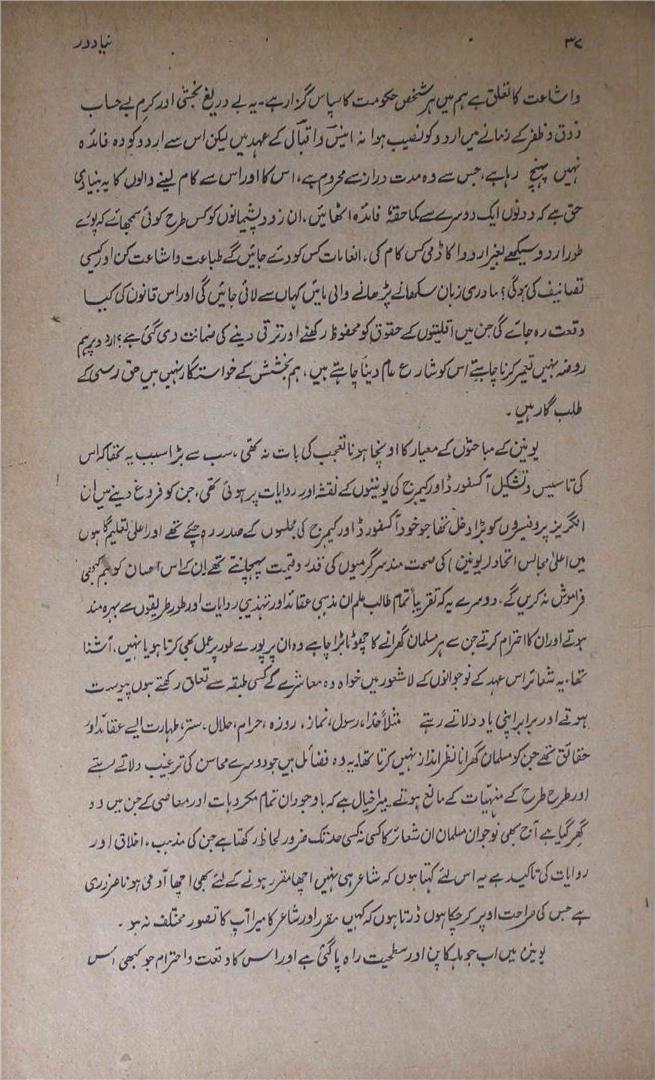 ۳۷
نیا دور
و اشاعت کا تعلق ہے ہم میں ہر شخص حکومت کا سپاس گزار ہے۔ یہ بے دریغ بخشی اور کرم بے حساب
ذوق و ظفر کے زمانے میں اردو کو نصیب ہوا نہ انیس و اقبال کے عہد میں لیکن اس سے اردو کو وہ فائدہ
نہیں پہنچ رہا ہے، جس سے وہ مدت دراز سے محروم ہے، اس کا اور اس سے کام لینے والوں کا یہ بنیادی
حق ہے کہ دونوں ایک دوسرے سے کما حقہٗ فائدہ اٹھائیں، ان زود پشیمانوں کو کس طرح کوئی سمجھائے کہ پورے
طور اردو سیکھے بغیر اردو اکاڈمی کس کام کی، انعامات کس کو دئے جائیں گے طباعت و اشاعت کن اور کیسی
تصانیف کی ہوگی؟ مادری زبان سکھانے پڑھانے والی مائیں کہاں سے لائی جائیں گی اور اس قانون کی کیا
وقعت رہ جائے گی جن میں اقلیتوں کے حقوق کو محفوظ رکھنے اور ترقی دینے کی ضمانت دی گئی ہے؟ اردو پر ہم
روضہ نہیں تعمیر کرنا چاہتے اس کو شارع عام دینا چاہتے ہیں، ہم بخشش کے خواستگار نہیں ہیں حق رسی کے
طلب گار ہیں۔
یونین کے مباحثوں کے معیار کا اونچا ہونا تعجب کی بات نہ تھی، سب سے بڑا سبب یہ تھا کہ اس
کی تاسیس و تشکیل آکسفورڈ اور کیمبرج کی یونینوں کے نقشہ اور روایات پر ہوئی تھی، جن کو فروغ دینے میں ان
انگریز پروفیسروں کو بڑا دخل تھا جو خود آکسفورڈ اور کیمبرج کی مجلسوں کے صدر رہ چکے تھے اور اعلیٰ تعلیم گاہوں
میں اعلیٰ مجالس اتحاد (یونین) کی صحت مند سرگرمیوں کی قدر و قیمت پہچانتے تھے ان کے اس احسان کو ہم کبھی
فراموش نہ کریں گے، دوسرے یہ کہ تقریباً تمام طالب علم ان مذہبی عقائد اور تہذیبی روایات اور طور طریقوں سے بہرہ مند
ہوتے اور ان کا احترام کرتے جن سے ہر مسلمان گھرانے کا چھوٹا بڑا چاہے وہ ان پر پورے طور پر عمل بھی کرتا ہو یا نہیں، آشنا
تھا، یہ شعائر اس عہد کے نوجوانوں کے لاشعور میں خواہ وہ معاشرے کے کسی طبقہ سے تعلق رکھتے ہوں پیوست
ہوتے اور برابر اپنی یاد دلاتے رہتے مثلاً خدا، رسول، نماز، روزہ، حرام، حلال، ستر، طہارت ایسے عقائد اور
حقائق تھے جن کو مسلمان گھرانا نظر انداز نہیں کرتا تھا۔ یہ وہ فضائل ہیں جو دوسرے محاسن کی ترغیب دلاتے رہتے
اور طرح طرح کے منہیات کے مانع ہوتے۔ میرا خیال ہے کہ باوجود ان تمام مکروہات اور معاصی کے جن میں وہ
گھر گیا ہے آج بھی نوجوان مسلمان ان شعائر کا کسی نہ کسی حد تک ضرور لحاظ رکھتا ہے جن کی مذہب، اخلاق اور
روایات کی تاکید ہے یہ اس لئے کہتا ہوں کہ شاعر ہی نہیں اچھا مقرر ہونے کے لئے بھی اچھا آدمی ہونا ضروری
ہے جس کی صراحت اوپر کر چکا ہوں ڈرتا ہوں کہ کہیں مقرر اور شاعر کا میرا آپ کا تصور مختلف نہ ہو۔
یونین میں اب جو ہلکا پن اور سطحیت راہ پا گئی ہے اور اس کا وقعت و احترام جو کبھی اس